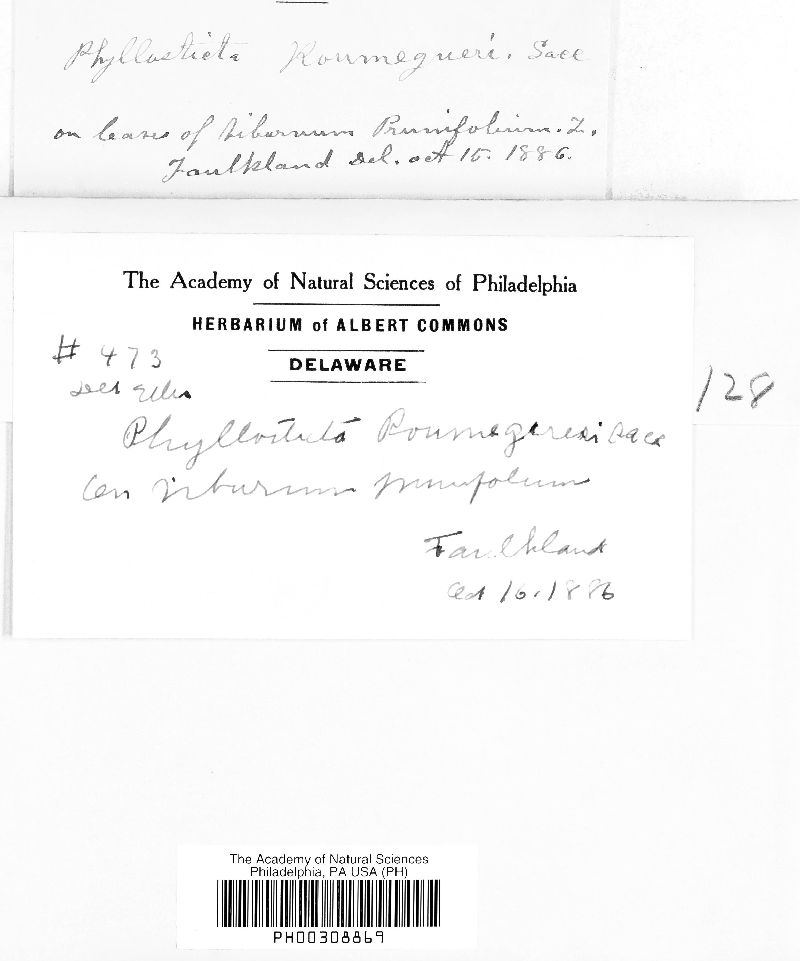 Phyllosticta Roumegueri. Sacc
on leaves of Viburnum Prunifolium. L.
Faulkland Del. oct 15. 1886.
The Academy of Natural Sciences of Philadelphia
HERBARIUM of ALBERT COMMONS
DELAWARE
# 473
Det Ellis
128
Phyllosticta Roumegerei Sacc
On Viburnum prunifolium
Faulkland
Oct 16. 1886
The Academy of Natural Sciences
Philadelphia, PA USA (PH)
PH00308869